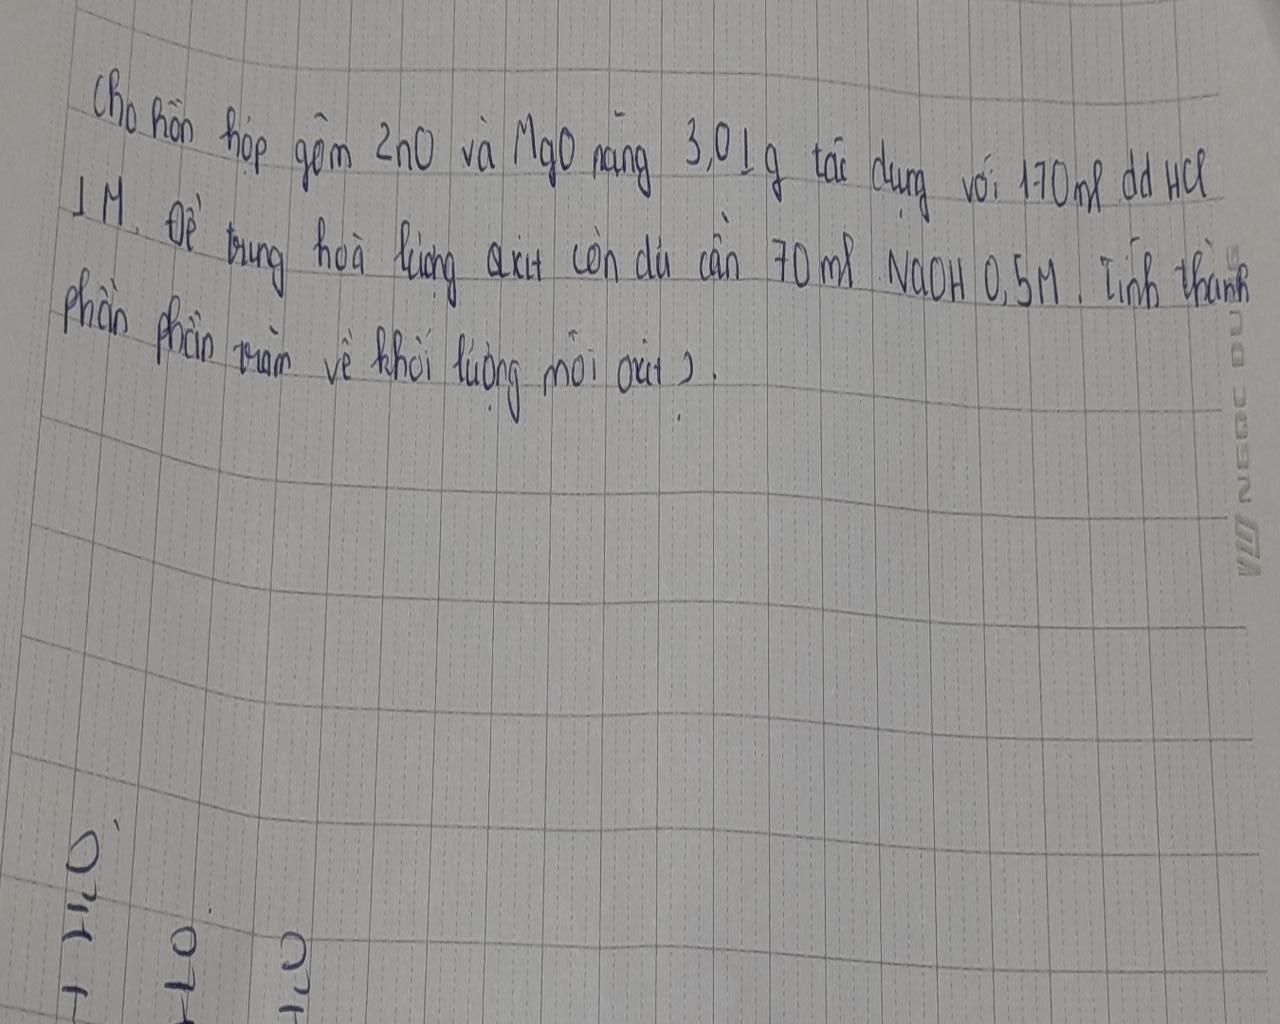 Cho hỗn hợp gồm ZnO và MgO nặng 3,01g tác dụng với 170ml dd HCl
1M. Để trung hoà lượng axit còn dư cần 70ml NaOH 0,5M. Tính thành
phần phần trăm về khối lượng mỗi oxit?